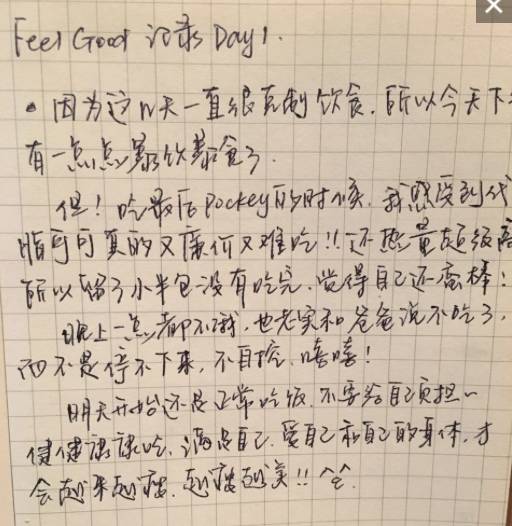 Feel Good 记录 Day1.
• 因为这n天一直很克制饮食,所以今天下
有一点点暴饮暴食了.
但！吃最后pockey的时候,我感受到代
脂可可真的又廉价又难吃!!还热量超级高
所以留了小半包没有吃完,觉得自己还蛮棒！
晚上一点都不饿,也老实和爸爸说不吃了,
而不是停不下来,不自控,嘻嘻！
明天开始还是正常吃饭,不要给自己负担~
健健康康吃,满足自己,爱自己和自己的身体,才
会越来越瘦,越瘦越美!!